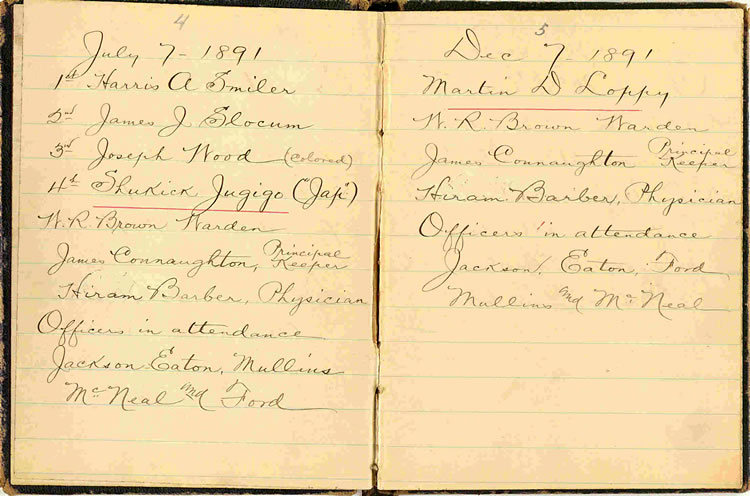 4
July 7 - 1891
1st Harris A Smiler
2nd James J Slocum
3rd Joseph Wood (colored)
4th Shukick Jugigo ("Jap")
W. R. Brown Warden
James Connaughton, Principal Keeper
Hiram Barber, Physician
Officers in attendance
Jackson - Eaton, Mullins
McNeal and Ford
5
Dec 7 - 1891
Martin D Loppy
W. R. Brown Warden
James Connaughton Principal Keeper
Hiram Barber, Physician
Officers in attendance
Jackson, Eaton, Ford
Mullins and McNeal